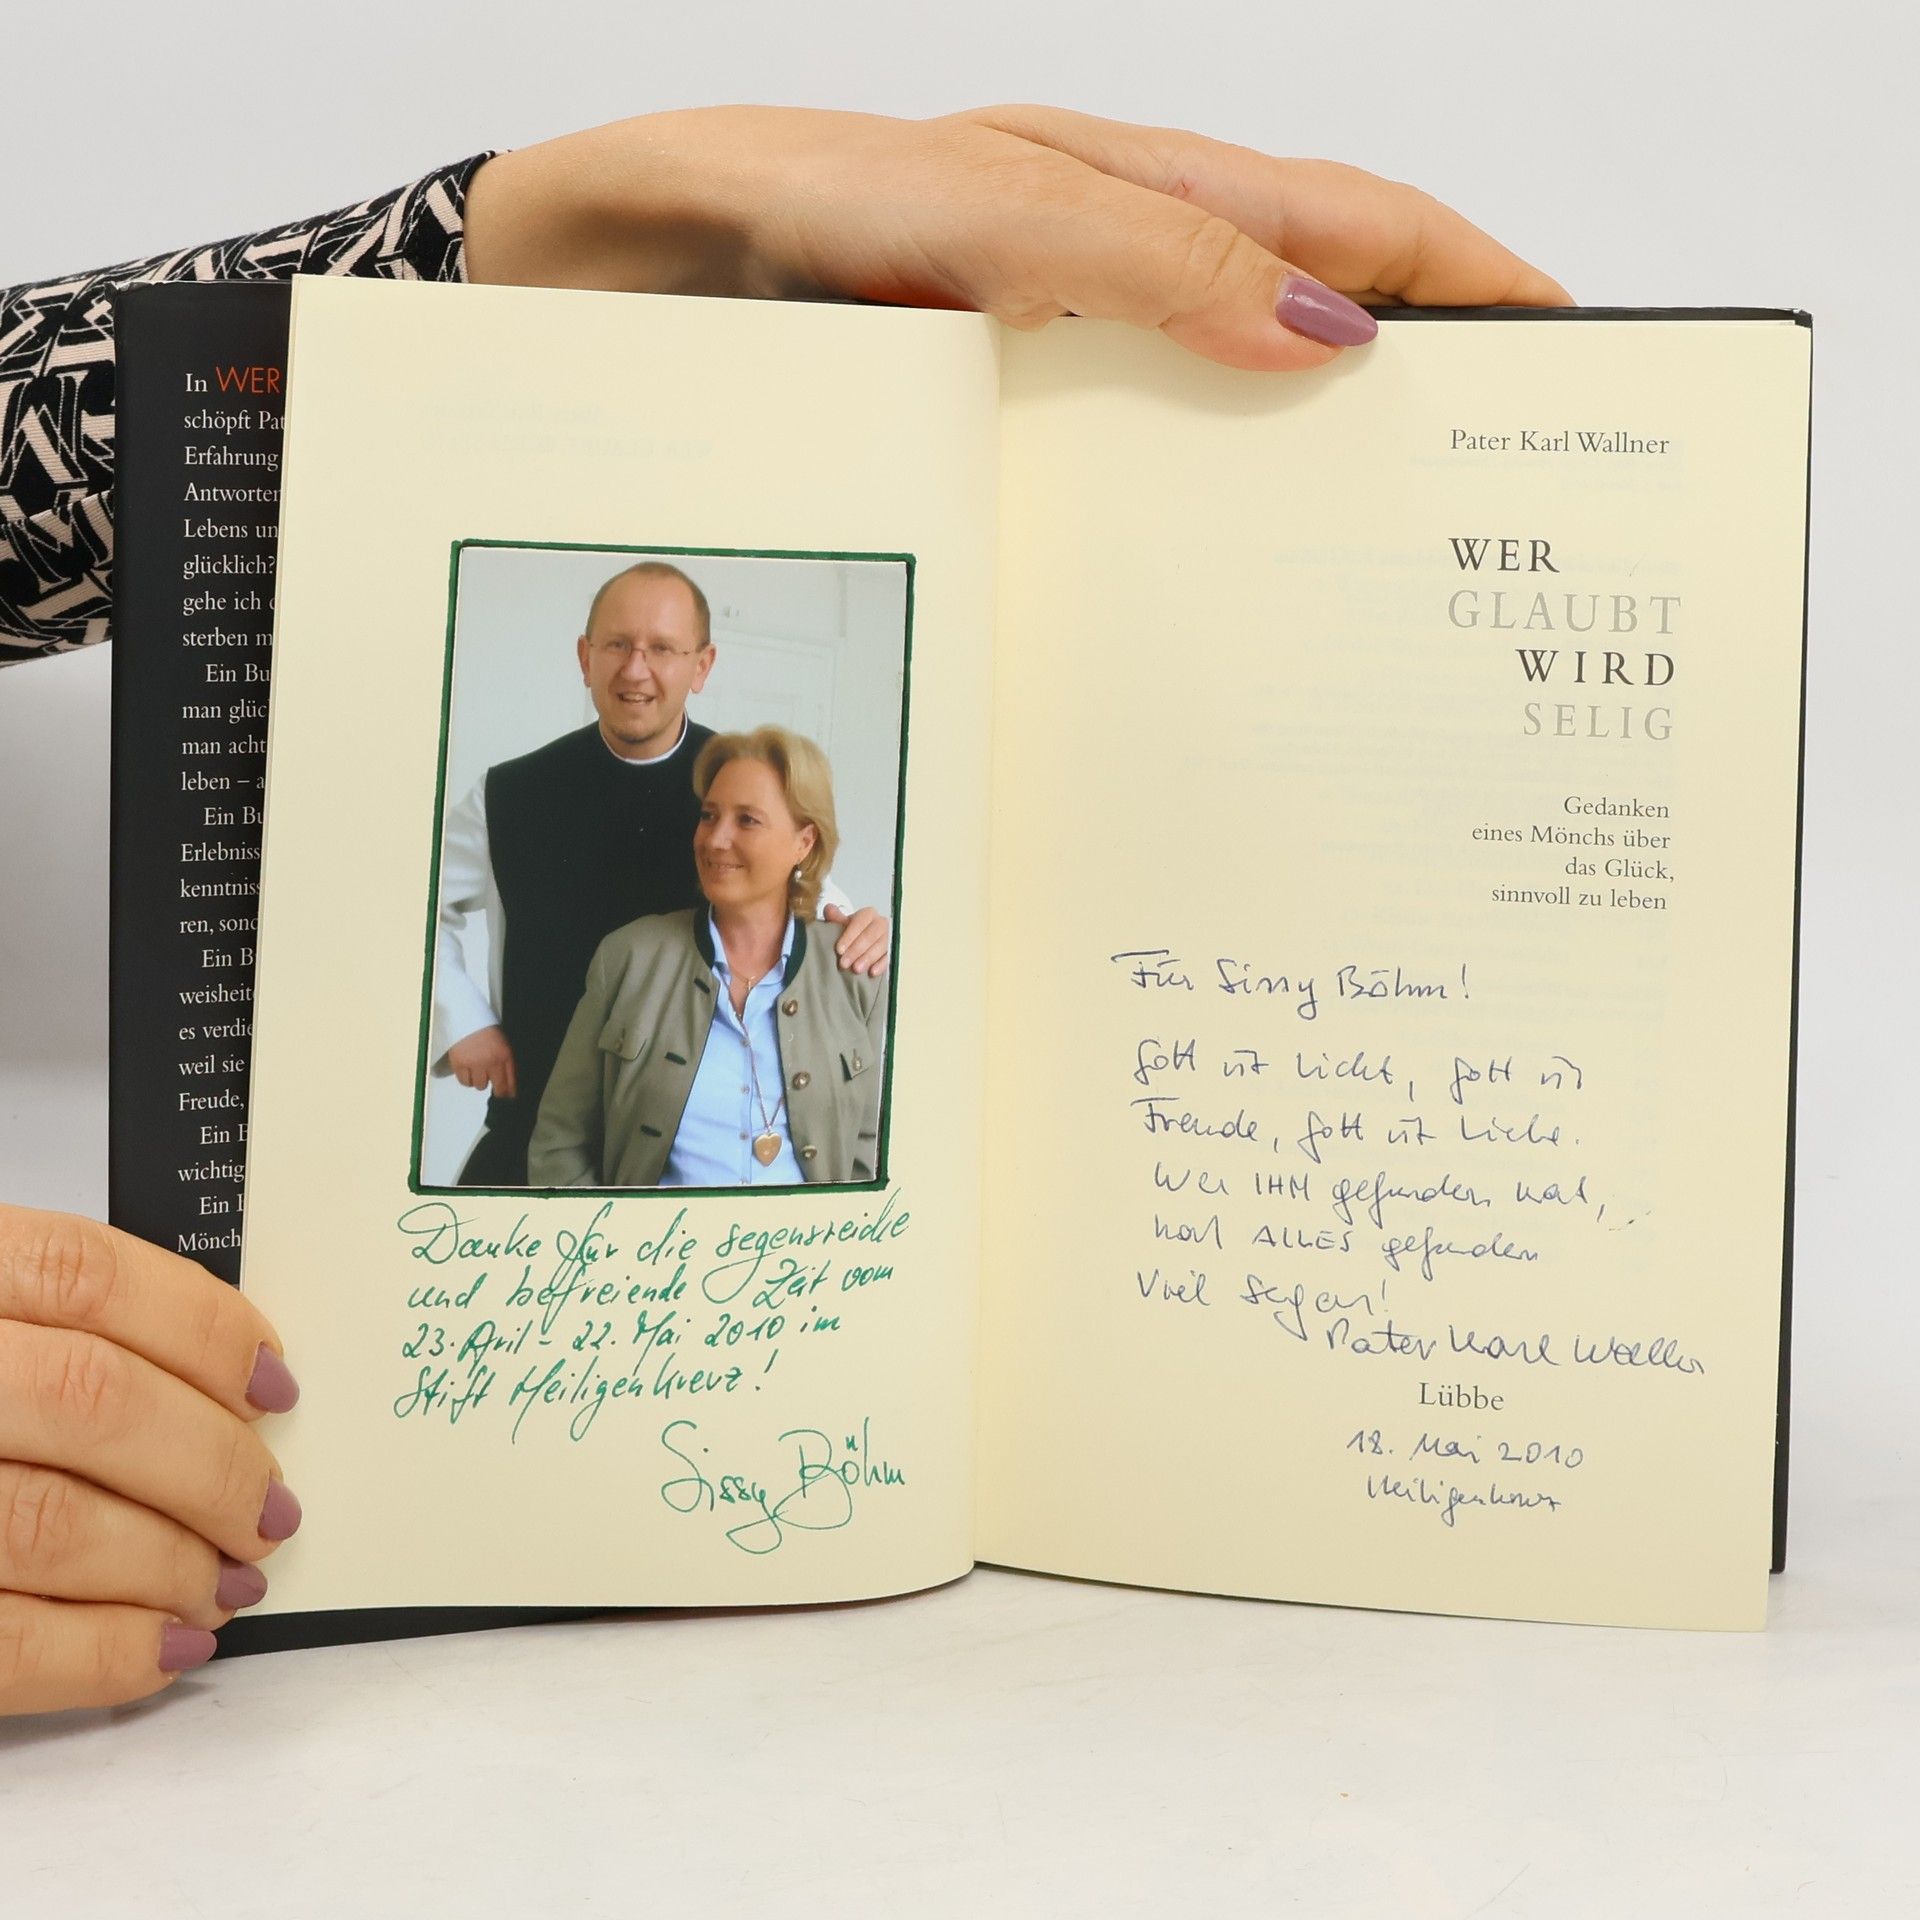 In WER
schöpft Pat
Erfahrung
Antworten
Lebens un
glücklich?
gehe ich
sterben m
Ein Bu
man glüc
man acht
leben – a
Ein Bu
Erlebniss
kenntniss
ren, sond
Ein B
weisheit
es verdie
weil sie
Freude,
Ein B
wichtig
Ein
Mönch
Danke für die segensreiche
und befreiende Zeit vom
23. April - 22. Mai 2010 im
Stift Heiligenkreuz!
Sissy Böhm
Pater Karl Wallner
WER
GLAUBT
WIRD
SELIG
Gedanken
eines Mönchs über
das Glück,
sinnvoll zu leben
Für Sissy Böhm!
Gott ist Licht, Gott ist
Freude, Gott ist Liebe.
Wer IHN gefunden hat,
hat ALLES gefunden
Viel Segen!
Pater Karl Wallner
Lübbe
18. Mai 2010
Heiligenkreuz